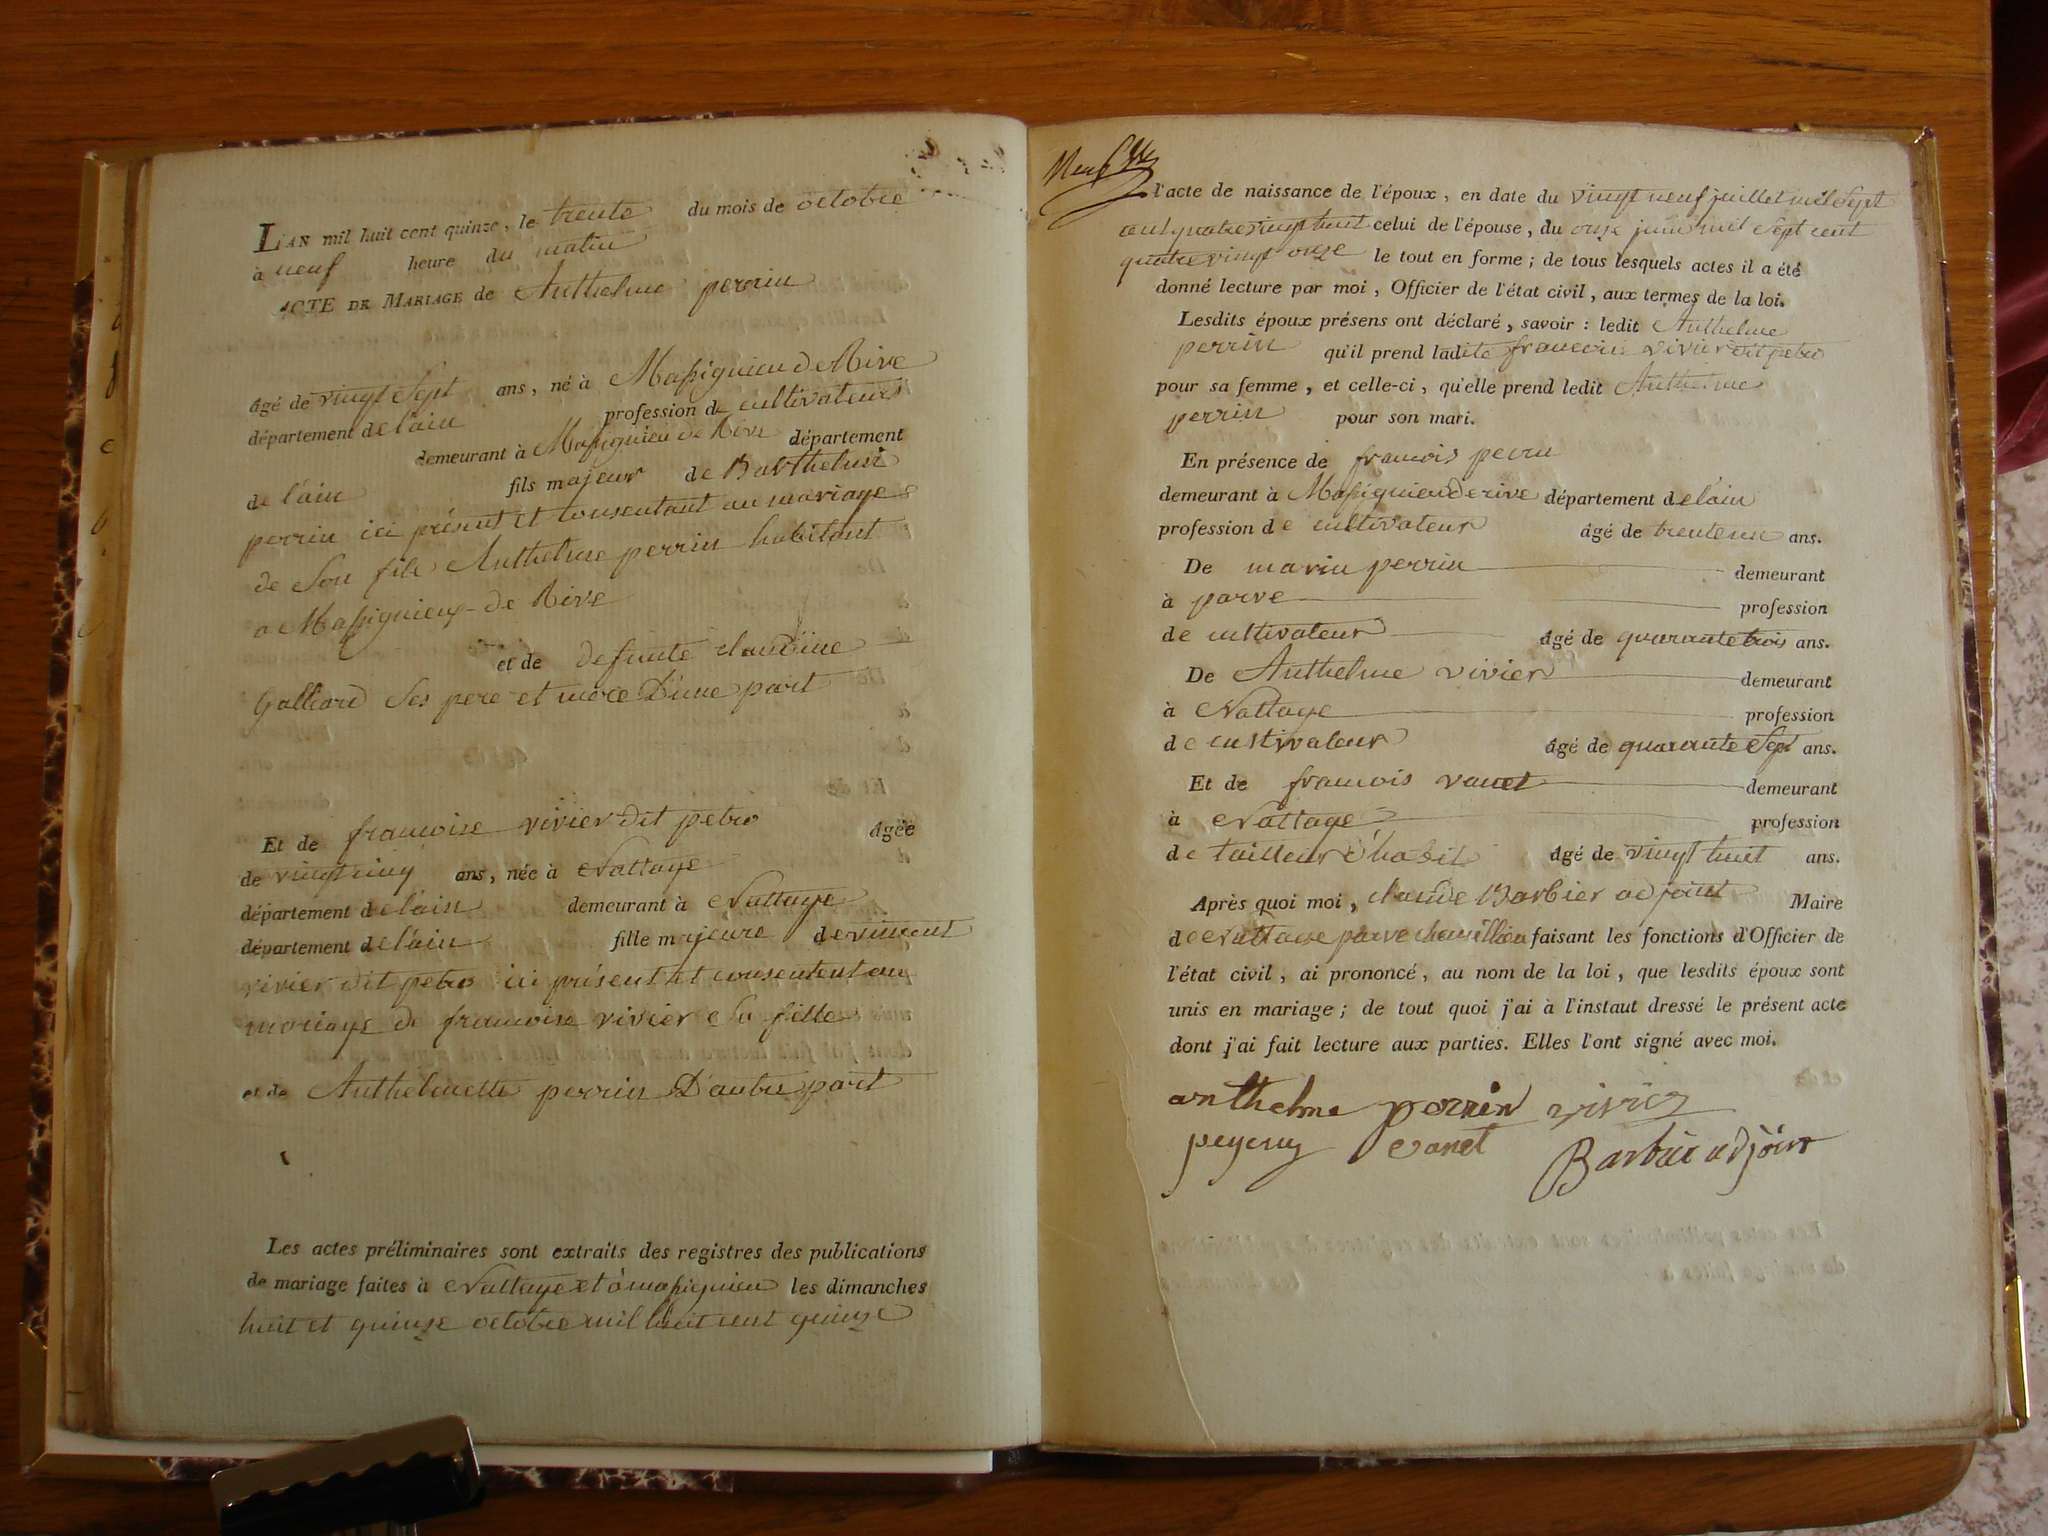 L'AN mil huit cent quinze, le trente du mois de octobre
à neuf heure du matin
ACTE DE MARIAGE de Anthelme perrin
âgé de vingt Sept ans, né à Massignieu de Rive
département de l'ain profession de cultivateur
demeurant à Massignieu de Rive département
de l'ain fils majeur de Barthelmi
perrin ici présent et consentant au mariage
de Son fils Anthelme perrin habitant
a Massignieux de Rive
et de defunte claudine
Galliard Ses pere et mere D'une part
Et de francoise vivier dit petro Agée
de vingt cinq ans, née à Nattage
département de l'ain demeurant à Nattage
département de l'ain fille majeure de vincent
vivier dit petro ici présent et consentent au
mariage de francoise vivier Sa fille
et de Anthelmette perrin D'autre part
Les actes préliminaires sont extraits des registres des publications
de mariage faites à Nattage et à massignieu les dimanches
huit et quinze octobre mil huit cent quinze
l'acte de naissance de l'époux, en date du vingt neuf juillet mil Sept
cent quatre vingt huit celui de l'épouse, du onze juin mil Sept cent
quatre vingt onze le tout en forme; de tous lesquels actes il a été
donné lecture par moi, Officier de l'état civil, aux termes de la loi.
Lesdits époux présens ont déclaré, savoir : ledit Anthelme
perrin qu'il prend ladite francoise vivier dit petro
pour sa femme, et celle-ci, qu'elle prend ledit Anthelme
perrin pour son mari.
En présence de francois
demeurant à Massignieu de rive département de l'ain
profession de cultivateur âgé de trente un ans.
De marin perrin demeurant
à parve profession
de cultivateur âgé de quarante trois ans.
De Anthelme vivier demeurant
à Nattage profession
de cultivateur âgé de quarante Sept ans.
Et de francois vanet demeurant
à Nattage profession
de tailleur d'habit âgé de vingt huit ans.
Après quoi moi, claude Barbier adjoint Maire
de Nattage parve faisant les fonctions d'Officier de
l'état civil, ai prononcé, au nom de la loi, que lesdits époux sont
unis en mariage; de tout quoi j'ai à l'instant dressé le présent acte
dont j'ai fait lecture aux parties. Elles l'ont signé avec moi.
anthelme perrin vivier
vanet Barbier adjoint